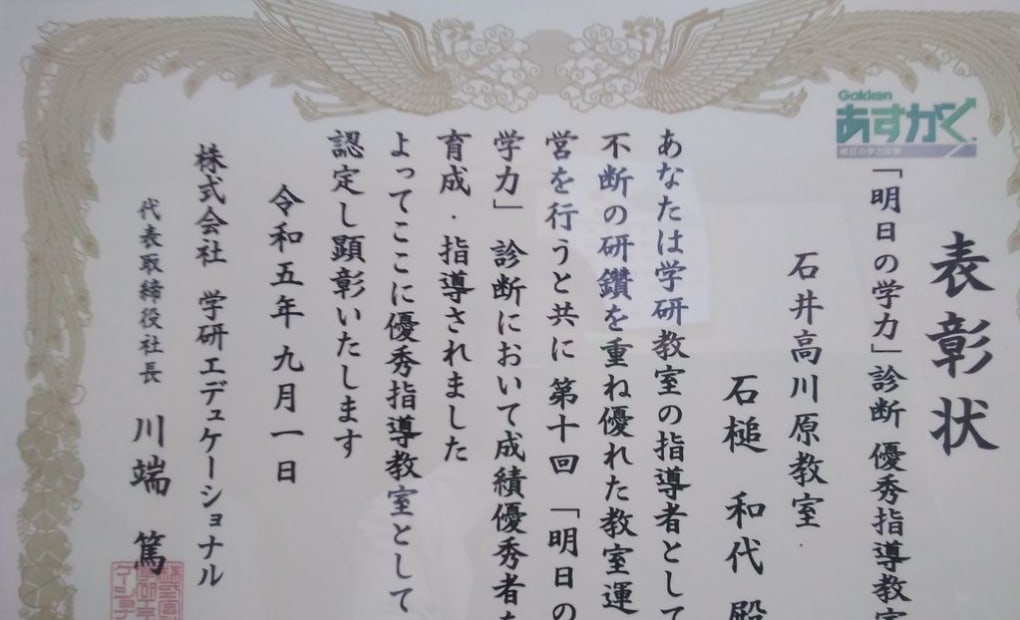 表彰状
Gakken
あすがく
「明日の学力」診断 優秀指導教室
石井高川原教室
石槌 和代 殿
あなたは学研教室の指導者として
不断の研鑽を重ね優れた教室運
営を行うと共に 第十回 「明日の
学力」 診断において成績優秀者を
育成・指導されました
よってここに優秀指導教室として
認定し顕彰いたします
令和五年 九月一日
株式会社 学研エデュケーショナル
代表取締役社長 川端 篤